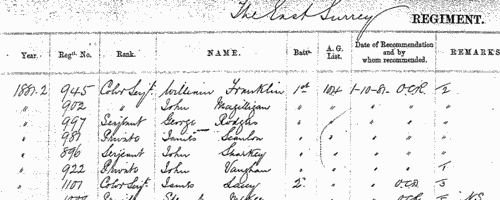 The East Surrey REGIMENT.
Year. Regtl. No. Rank. NAME. Batn. A. G. List. Date of Recommendation and by whom recommended. REMARKS
1881-2 945 Color Serjt. William Franklin 1st 104 1-10-81 O.C.R. 1/2
" 902 " John Magilligan " " " " "
" 997 Serjeant George Rodgers " " " "
" 987 Private James Scanlon " " " "
" 896 Serjeant John Sharkey " " " "
" 922 Private John Vaughan " " " "
" 1101 Color Serjt. James Lacey 2 " " O.C.R.